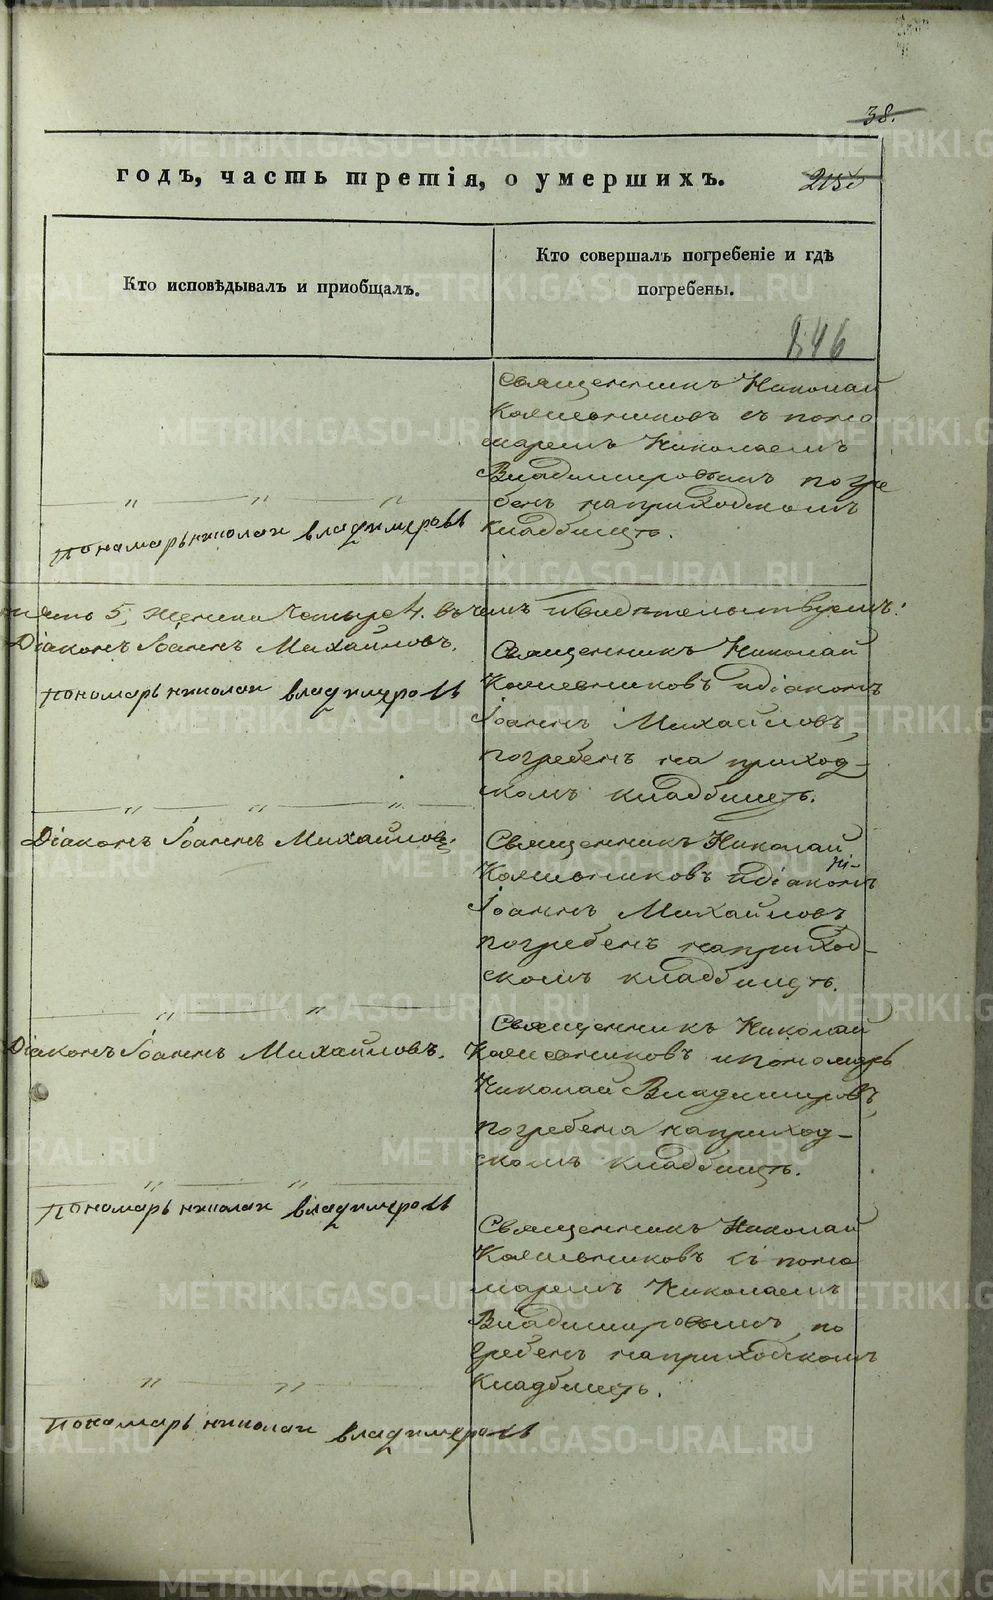 38.
годъ, часть третія, о умершихъ.
Кто исповѣдывалъ и пріобщалъ.
Кто совершалъ погребеніе и гдѣ
погребены.
846
Священникъ Николай
съ поно
маремъ Николаемъ
Владимировымъ погре
бенъ наприходскомъ
кладбищѣ.
пономарь николай владимеровъ
пять 5, Женска Четыре 4. въ чемъ исвидѣтельствуемъ:
Діаконъ Іоаннъ Михайловъ.
пономарь николай владимеровъ
Священникъ Николай
идіаконъ
Іоаннъ Михайловъ,
погребенъ на приход-
скомъ кладбищѣ.
Діаконъ Іоаннъ Михайловъ.
Священникъ Николай
идіаконъ
Іоаннъ Михайловъ
погребенъ наприход-
скомъ кладбищѣ.
Діаконъ Іоаннъ Михайловъ.
Священникъ Николай
ипономарь
Николай Владимировъ,
погребена наприход-
скомъ кладбищѣ.
пономарь николай владимеровъ
Священникъ Николай
съ поно
маремъ Николаемъ
Владимировымъ, по
гребенъ наприходскомъ
кладбищѣ.
пономарь николай владимеровъ
METRIKI.GASO-URAL.RU